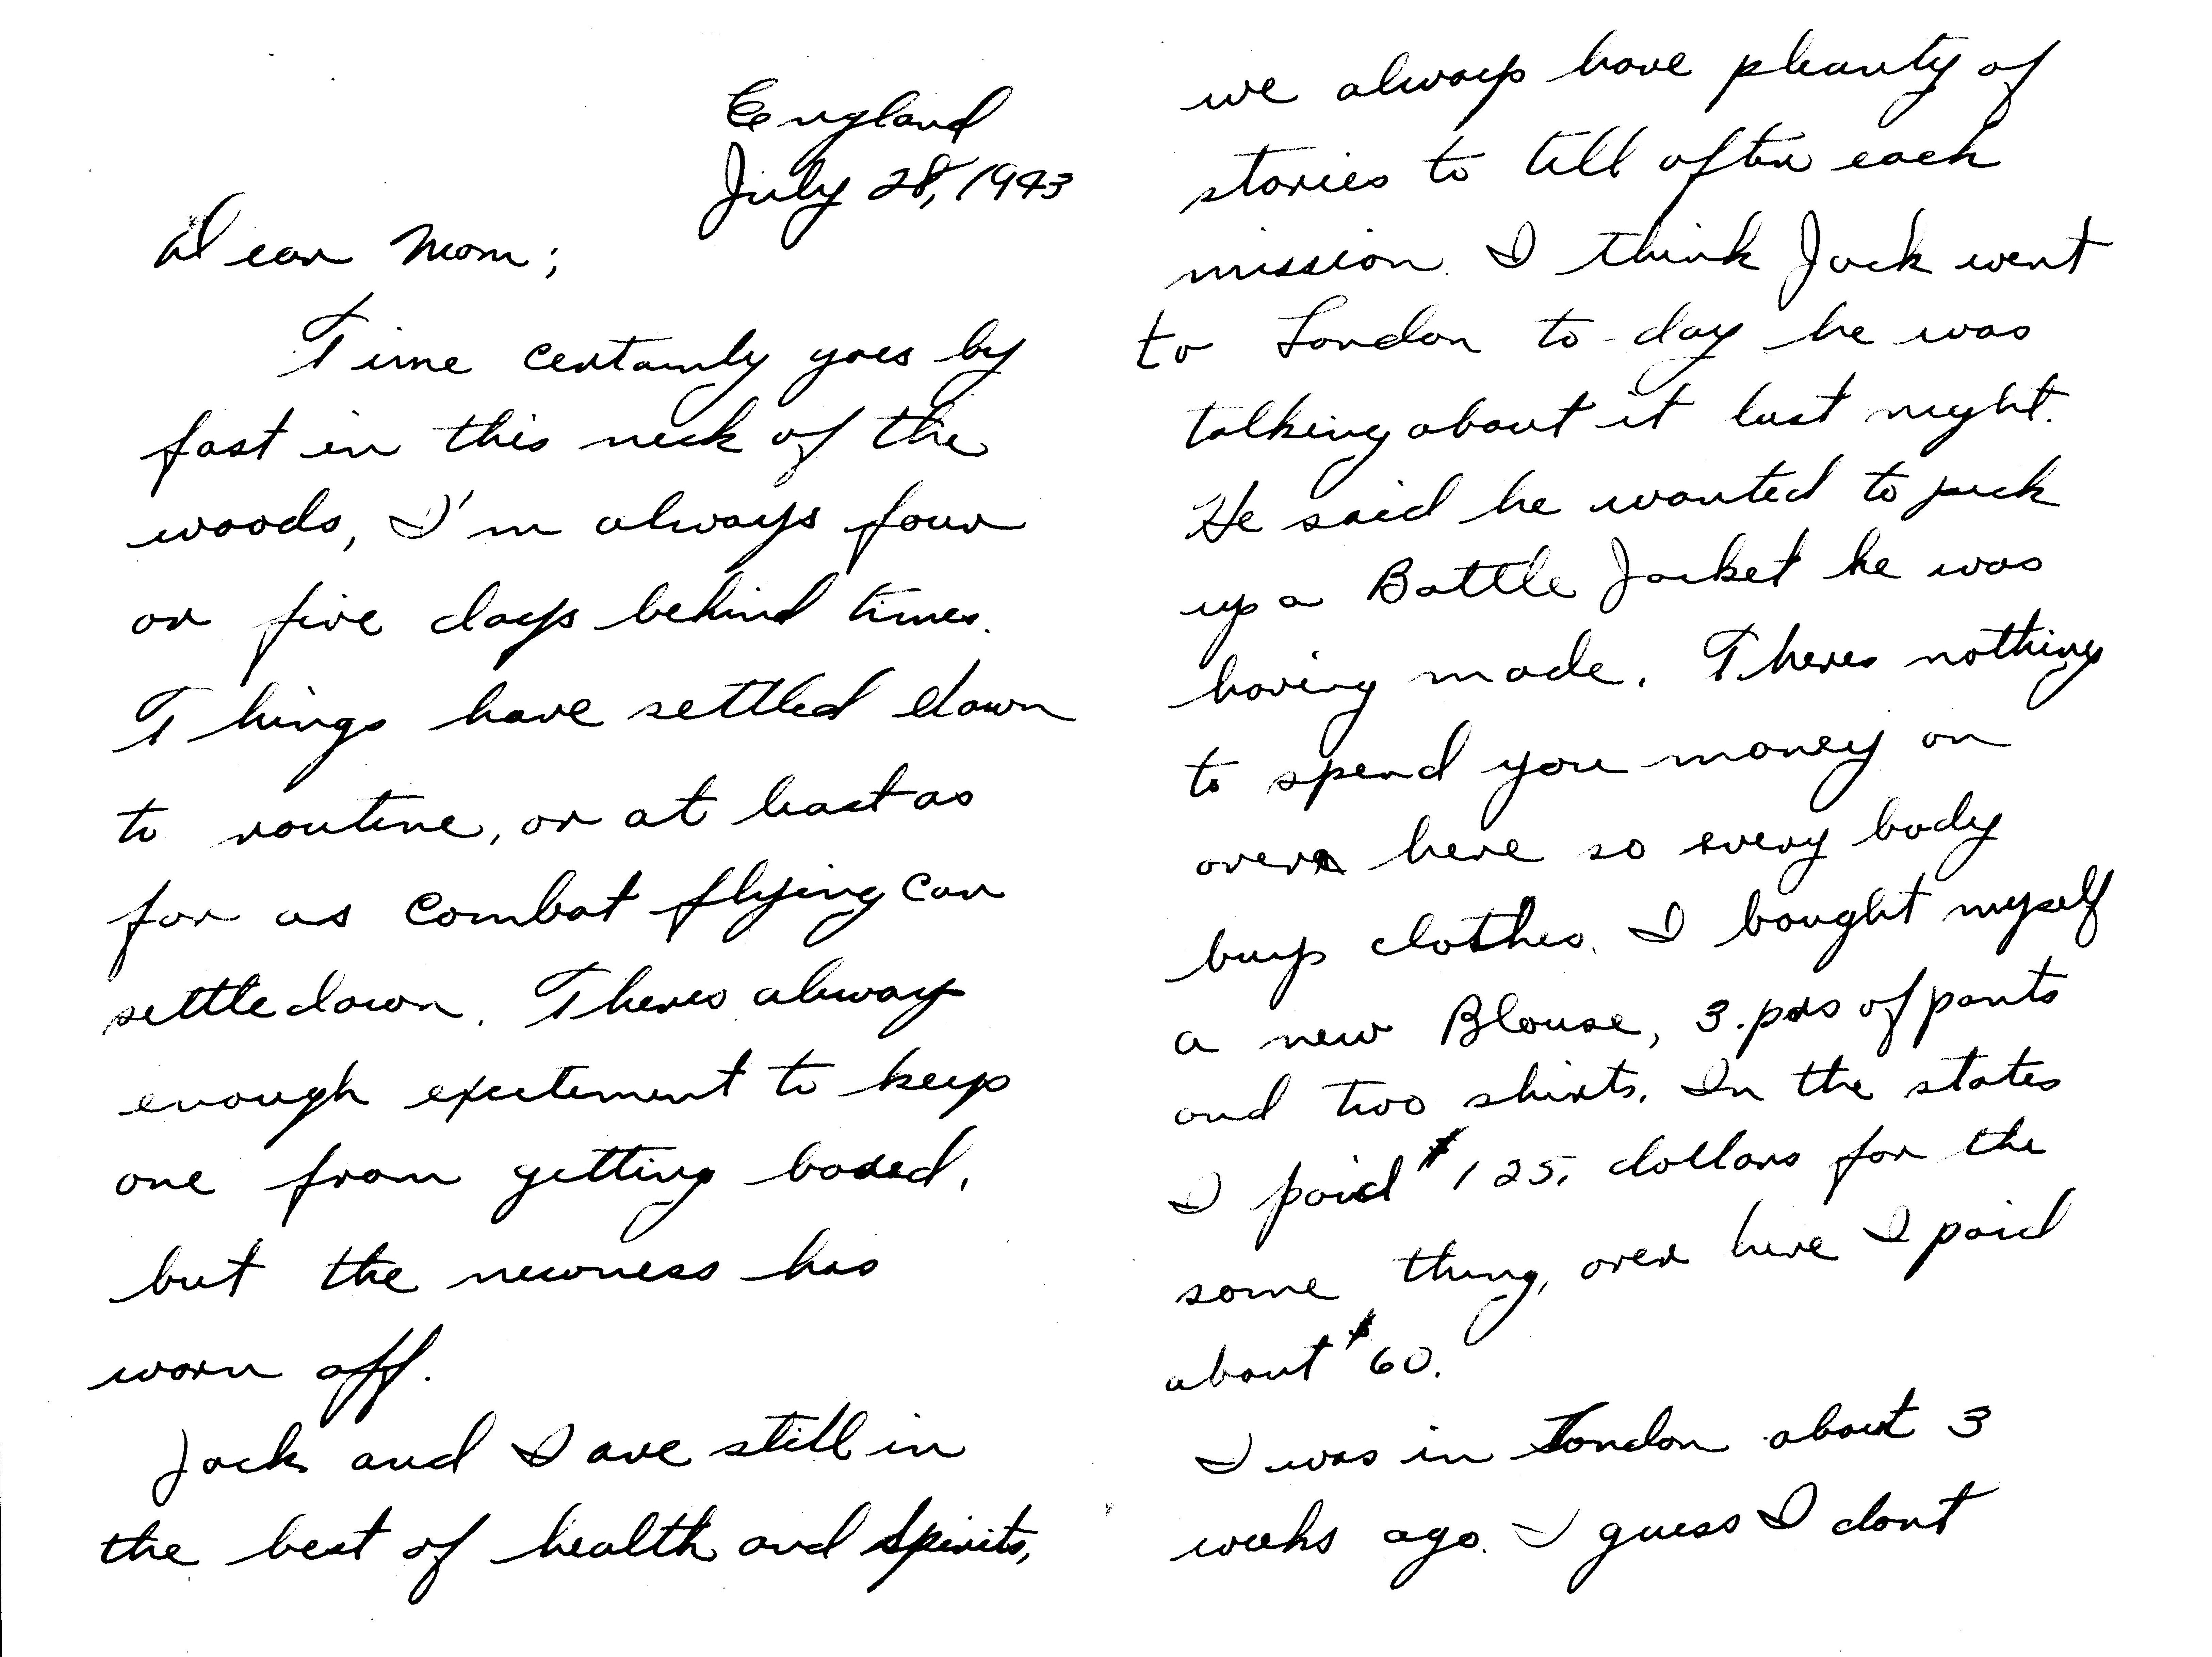 England
July 28, 1943
Dear Mom;
Time certainly goes by
fast in this neck of the
woods, I'm always four
or five days behind times.
Things have settled down
to routine, or at least as
far as combat flying can
settle down. Theres always
enough excitement to keep
one from getting bored,
but the newness has
worn off.
Jack and I are still in
the best of health and spirits,
we always have pleanty of
stories to tell after each
mission. I think Jack went
to London to-day he was
talking about it last night.
He said he wanted to pick
up a Battle Jacket he was
having made. Theres nothing
to spend you money on
over here so every body
buys clothes. I bought myself
a new Blouse, 3. prs of pants
and two shirts. In the states
I paid $125. dollars for the
same thing, over here I paid
about $60.
I was in London about 3
weeks ago. I guess I dont